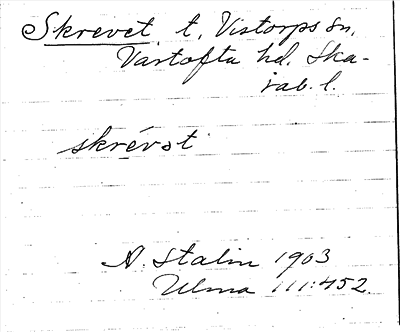 Skrevet t. Vistorps sn.
Vartofta hd. Ska-
rab. l.
skrévət
A. Stalin 1903
Ulma 111:452.